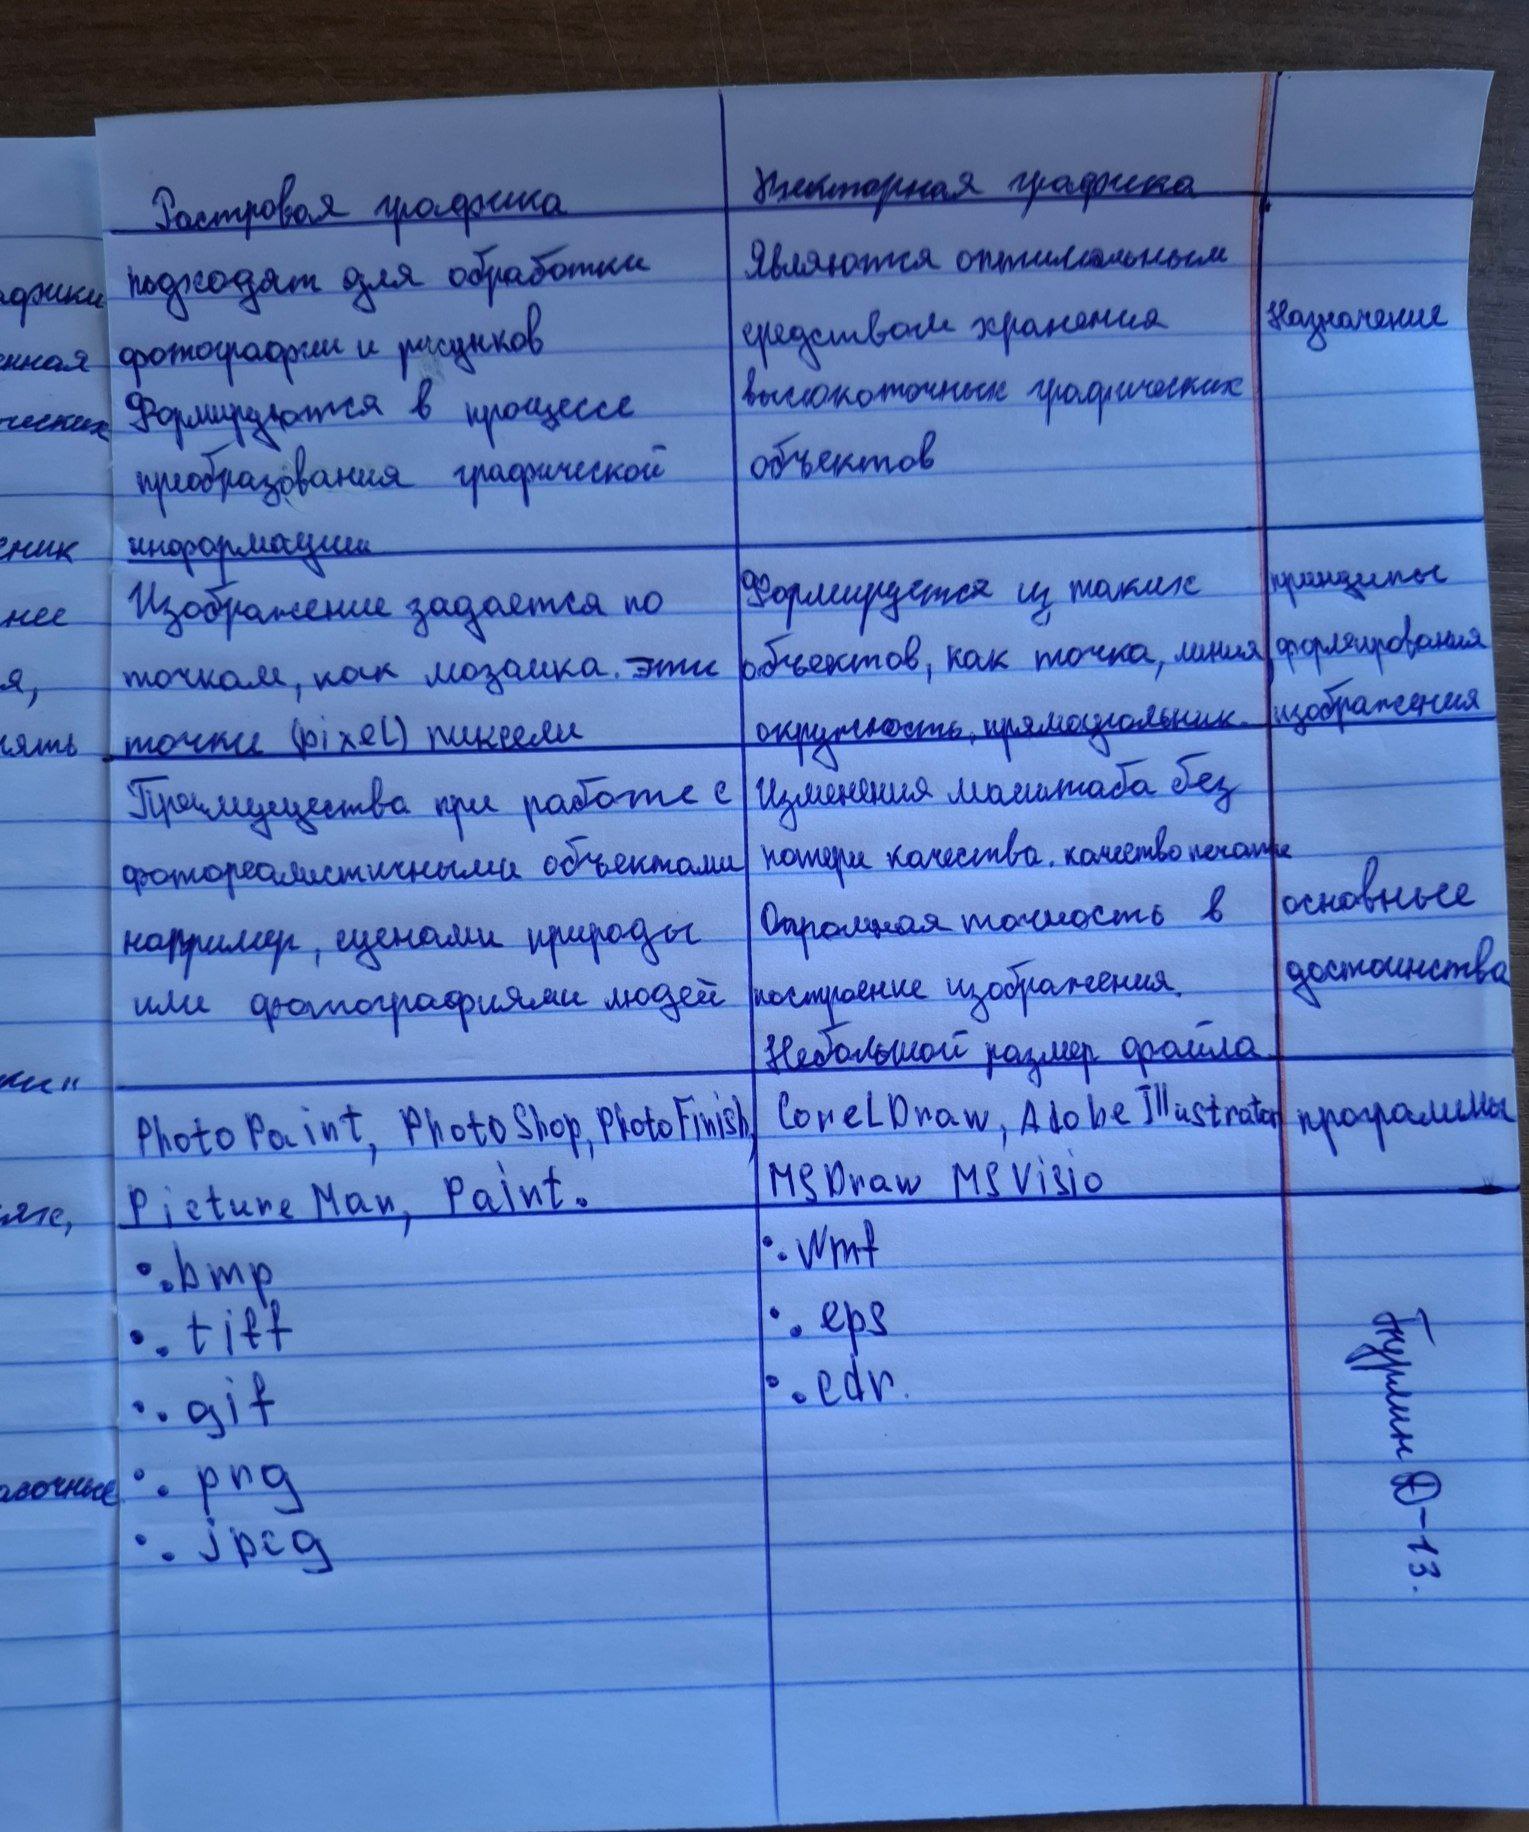 Растровая графика
подходят для обработки
фотографии и рисунков
Формируются в процессе
преобразования графической
информации
Изображение задается по
точкам, как мозаика. эти
точки (pixel) пиксели
Преимущества при работе с
фотореалистичными объектами
например, сценами природы
или фотографиями людей
PhotoPaint, PhotoShop, PhotoFinish,
Picture Man, Paint.
•.bmp
•. tiff
•. gif
•. png
•. jpeg
Векторная графика
Являются оптимальным
средством хранения
высокоточных графических
объектов
Формируется из таких
объектов, как точка, линия,
окружность, прямоугольник.
Изменения масштаба без
потери качества. качество печати
Огромная точность в
построение изображения.
Небольшой размер файла
CorelDraw, Adobe Illustrator
MSDraw MSVisio
•. wmf
•. eps
•. cdr.
Назначение
принципы
формирования
изображения
основные
достоинства
программы
Д-13.
афики
енная
ческих
ник
нее
я,
нять
ки"
авочные